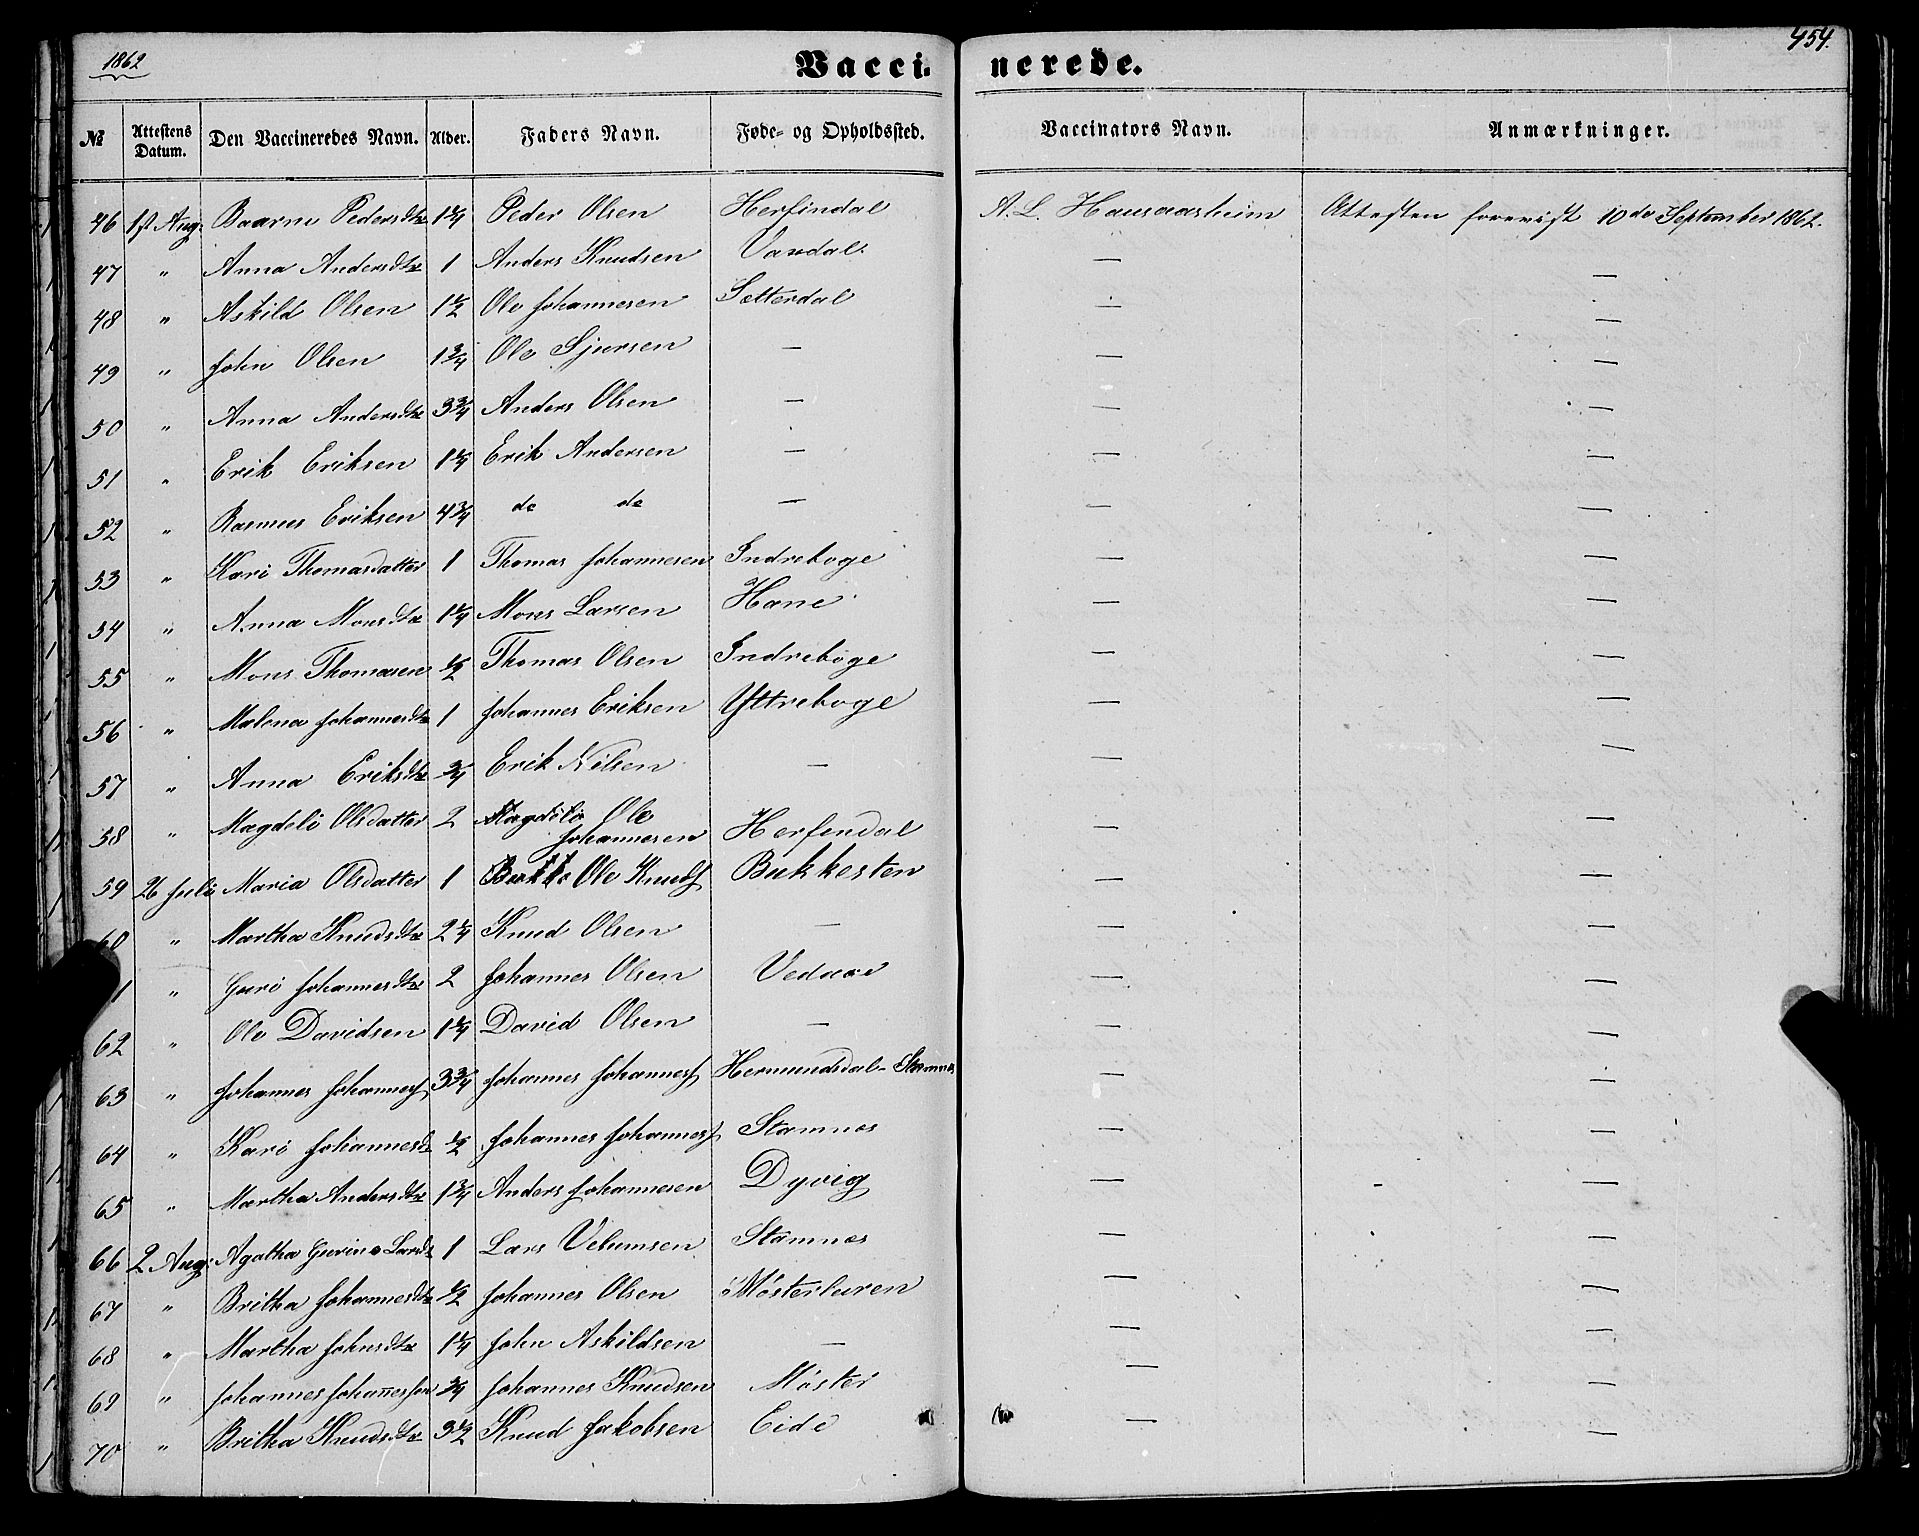 1862
454.
Vacci- nerede.
№ Attestens Datum. Den Vaccineredes Navn. Alder. Faders Navn. Føde- og Opholdssted. Vaccinators Navn. Anmærkninger.
46 1st Aug: Pedersdtr 1 1/4 Peder Olsen Herfindal A. L. Attesten forevist 10de September 1862.
47 " Anna Andersdtr 1 Anders Knudsen — —
48 " Askild Olsen 1 1/2 Ole Johannesen Sætterdal — —
49 " John Olsen 1 3/4 Ole Sjursen — — —
50 " Anna Andersdtr 3 3/4 Anders Olsen — — —
51 " Erik Eriksen 1 1/4 Erik Andersen — — —
52 " Rasmus Eriksen 4 3/4 do do — — —
53 " Kari Thomasdatter 1 Thomas Johannesen Indreboge — —
54 " Anna Monsdtr 1 1/4 Mons Larsen Hane — —
55 " Mons Thomasen 1/2 Thomas Olsen Indreboge — —
56 " Malena Johannesdtr 1 Johannes Eriksen Yttreboge — —
57 " Anna Eriksdtr 3/4 Erik Nilsen — — —
58 " Magdeli Olsdatter 2 Magdeli Ole
Johannesen Herfendal — —
59 26 Juli Maria Olsdatter 1 Ole Knuds Bukkesten — —
60 " Martha Knudsdtr 2 1/4 Knud Olsen — — —
1 " Guri Johannesdtr 2 Johannes Olsen Vedaae — —
62 " Ole Davidsen 1 1/4 David Olsen — — —
63 " Johannes Johannes 3 3/4 Johannes Johannes Hermundsdal-Stamnes — —
64 " Kari Johannesd 1/2 Johannes Johannes Stamnes — —
65 " Martha Andersdtr 1 3/4 Anders Johannesen Dyvig — -
66 2 Aug: Agatha Gurine Larsd 1 Lars Velumsen Stamnes — —
67 " Britha Johannesdtr 1/2 Johannes Olsen Mösterluren — —
68 " Martha Johnsdtr 1 1/4 John Askildsen — — —
69 " Johannes Johannessen 3/4 Johannes Knudsen Möster — —
70 " Britha Knudsdtr 3 1/2 Knud Jakobsen Eide — —